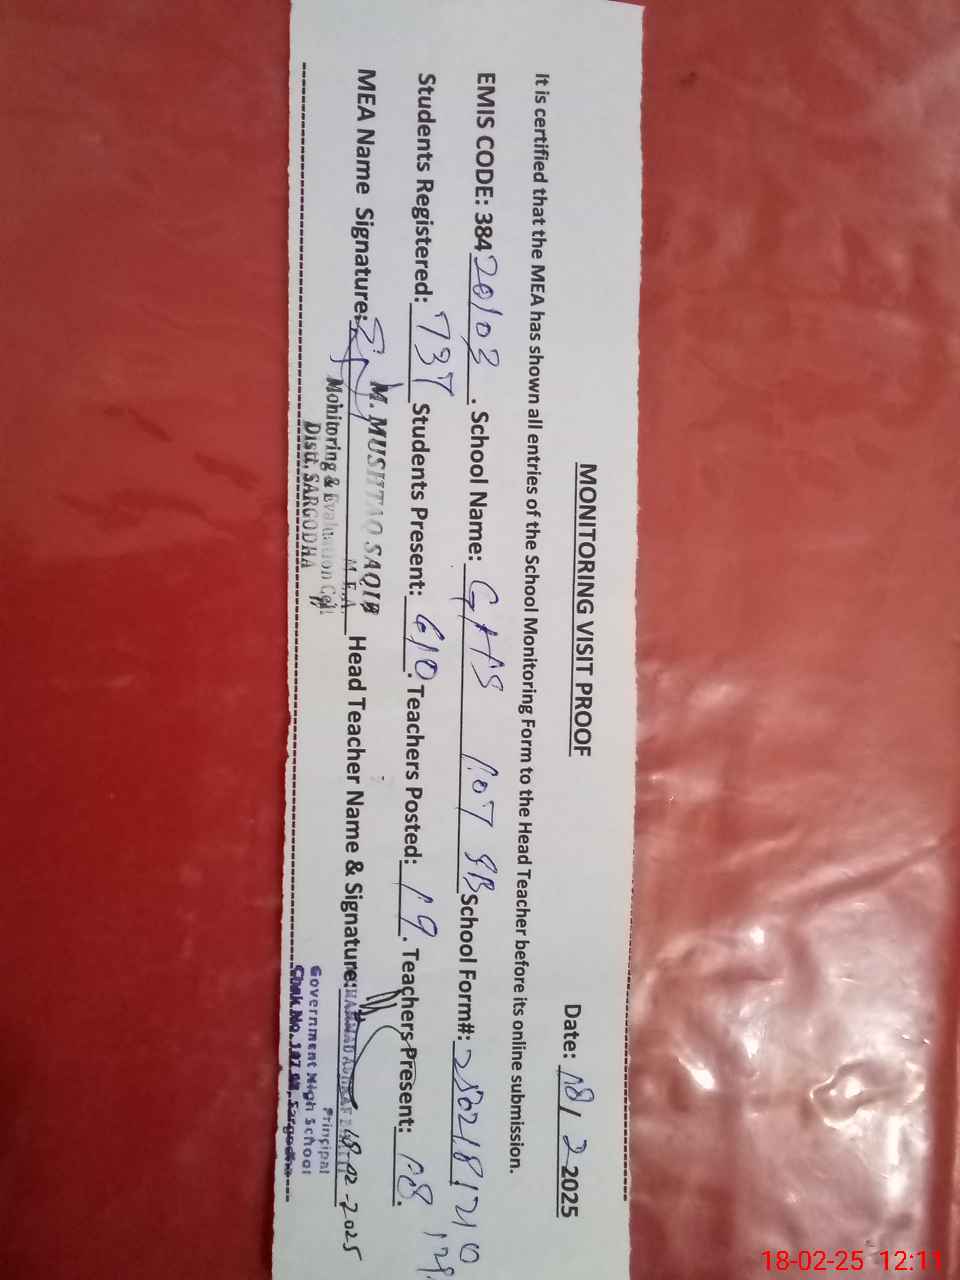 MONITORING VISIT PROOF
Date: 18/2 2025
It is certified that the MEA has shown all entries of the School Monitoring Form to the Head Teacher before its online submission.
EMIS CODE: 38420103. School Name: GHS 107 SB School Form#:
Students Registered: 737 Students Present: 610. Teachers Posted: 19. Teachers Present: 18.
MEA Name Signature: Head Teacher Name & Signature:
M. MUSHTAQ SAQIB
M.E.A
Monitoring & Evaluation Cell
Distt. SARGODHA
18-02-2025
Principal
Government High School
Chak No. 107 SB, Sargodha
18-02-25 12:11